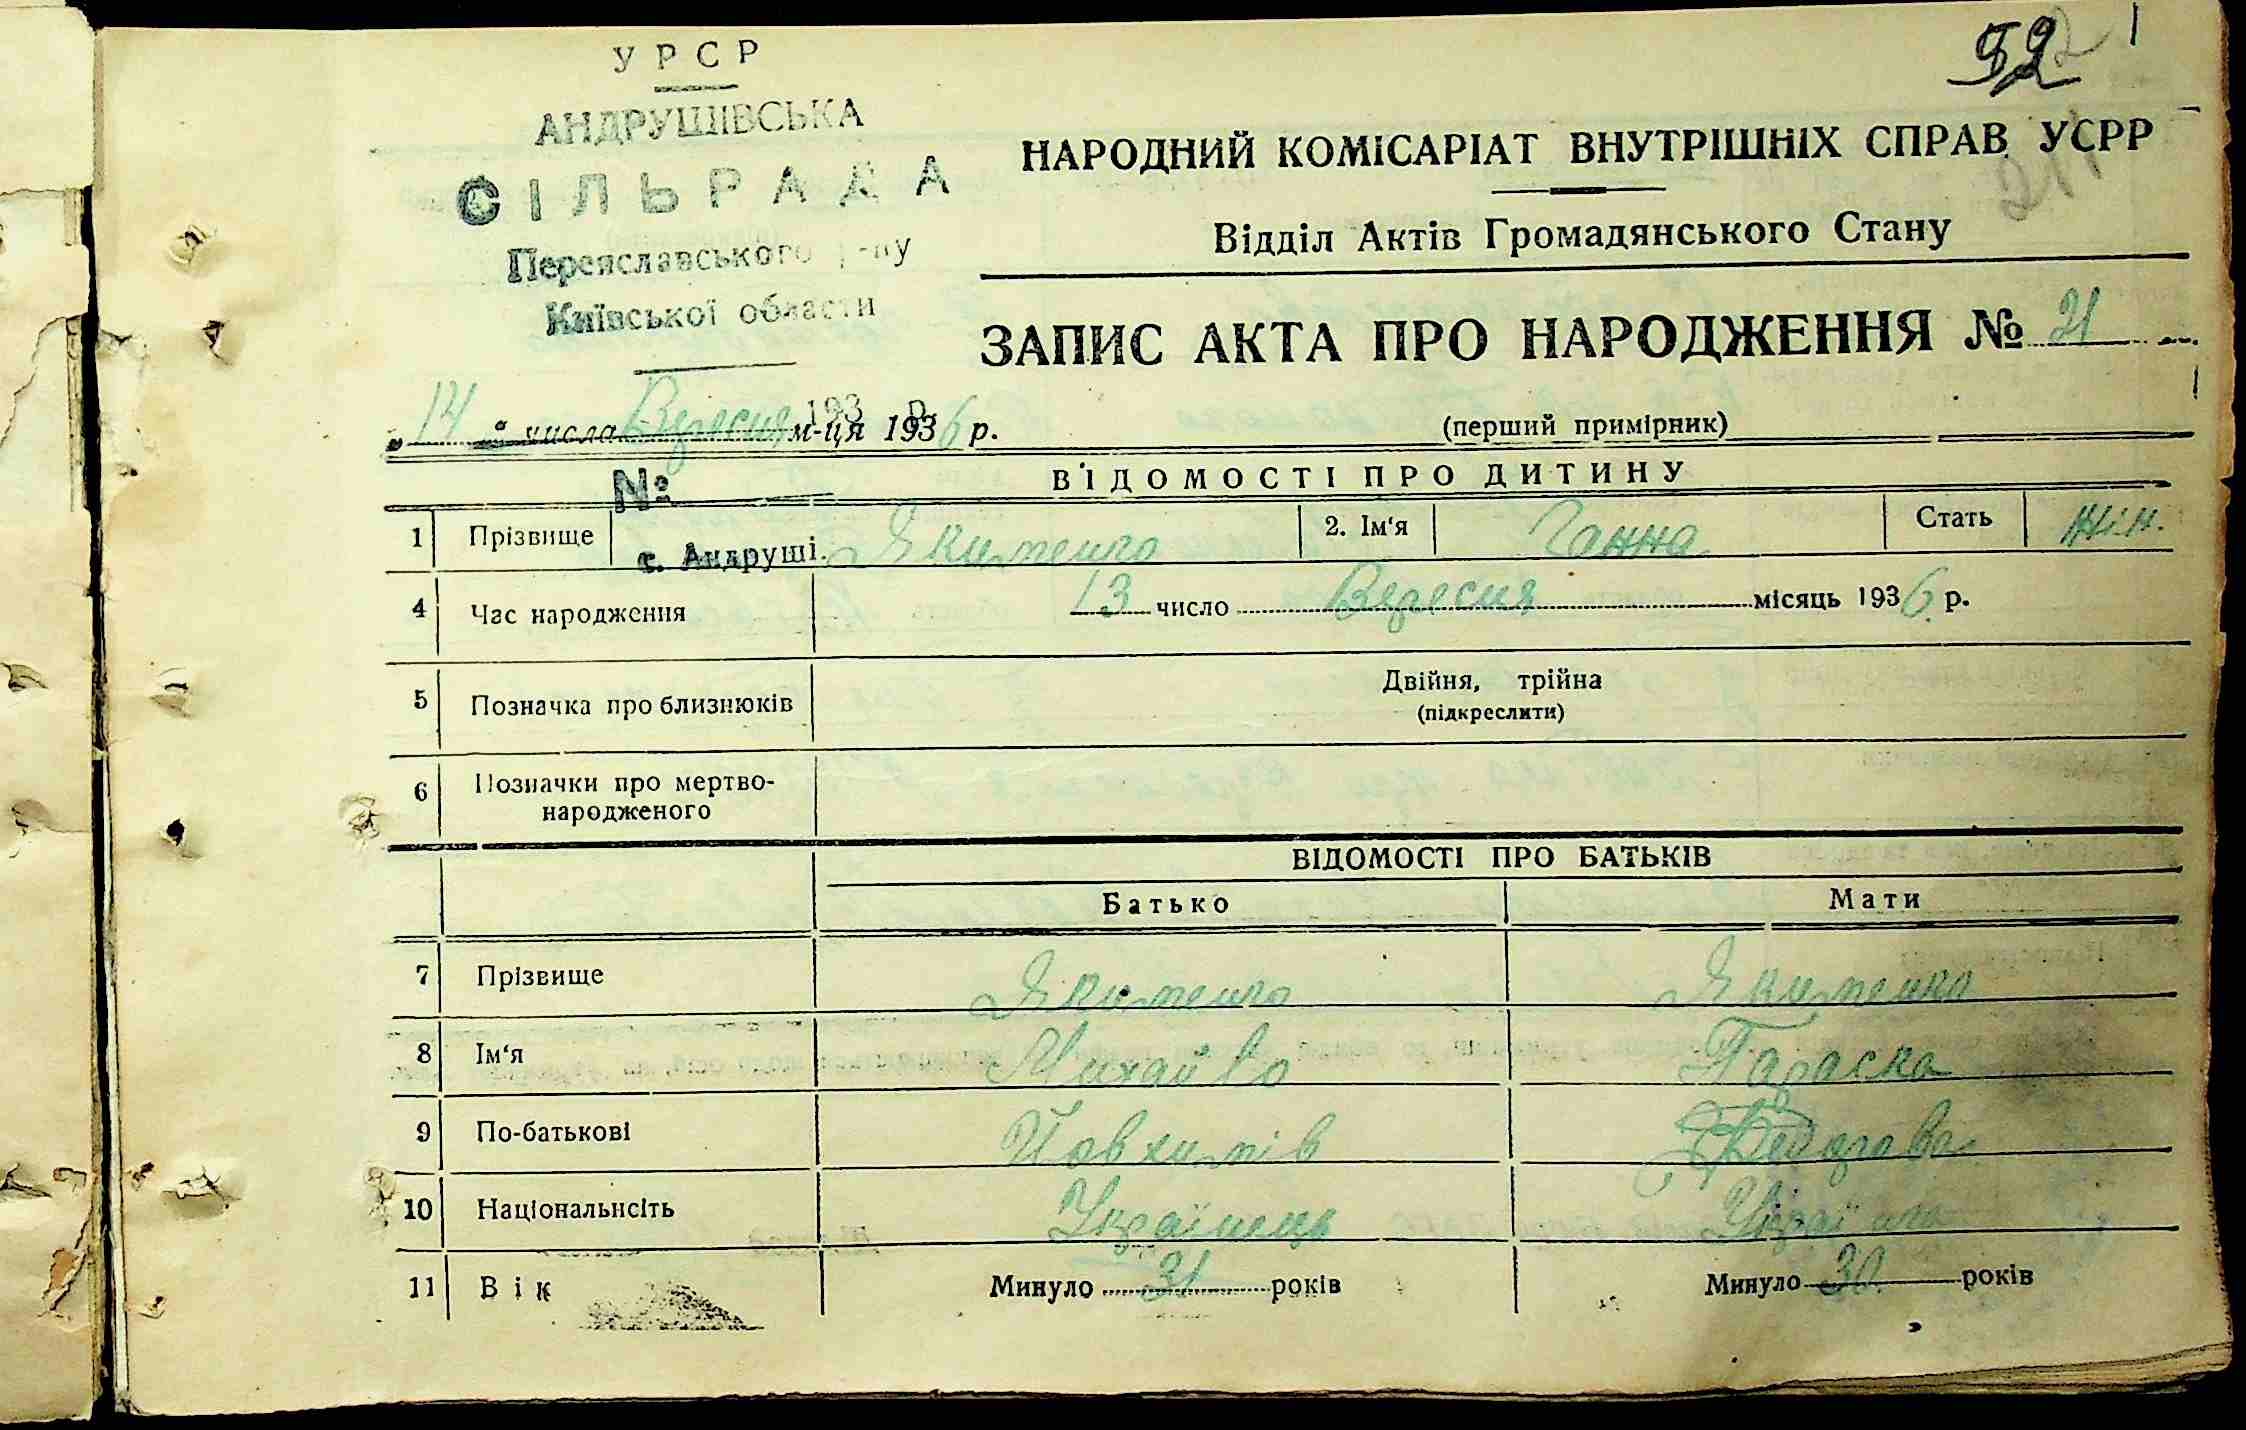 52
У Р С Р
АНДРУШІВСЬКА
СІЛЬРАДА
Переяславського р-ну
Київської области
193 р.
№
с. Андруші.
НАРОДНИЙ КОМІСАРІАТ ВНУТРІШНІХ СПРАВ УСРР
211
Відділ Актів Громадянського Стану
ЗАПИС АКТА ПРО НАРОДЖЕННЯ № 21
„14“ числа Вересня м-ця 1936 р.
(перший примірник)
ВІДОМОСТІ ПРО ДИТИНУ
1 Прізвище Якименко 2. Ім‘я Ганна Стать жін.
4 Час народження 13 число Вересня місяць 1936 р.
5 Позначка про близнюків Двійня, трійна
(підкреслити)
6 Позначки про мертво-
народженого
ВІДОМОСТІ ПРО БАТЬКІВ
Батько Мати
7 Прізвище Якименко Якименко
8 Ім‘я Михайло Параска
9 По-батькові Йовхимів Федорова
10 Національнсіть Українець Україн
11 Вік Минуло 31 років Минуло 30 років